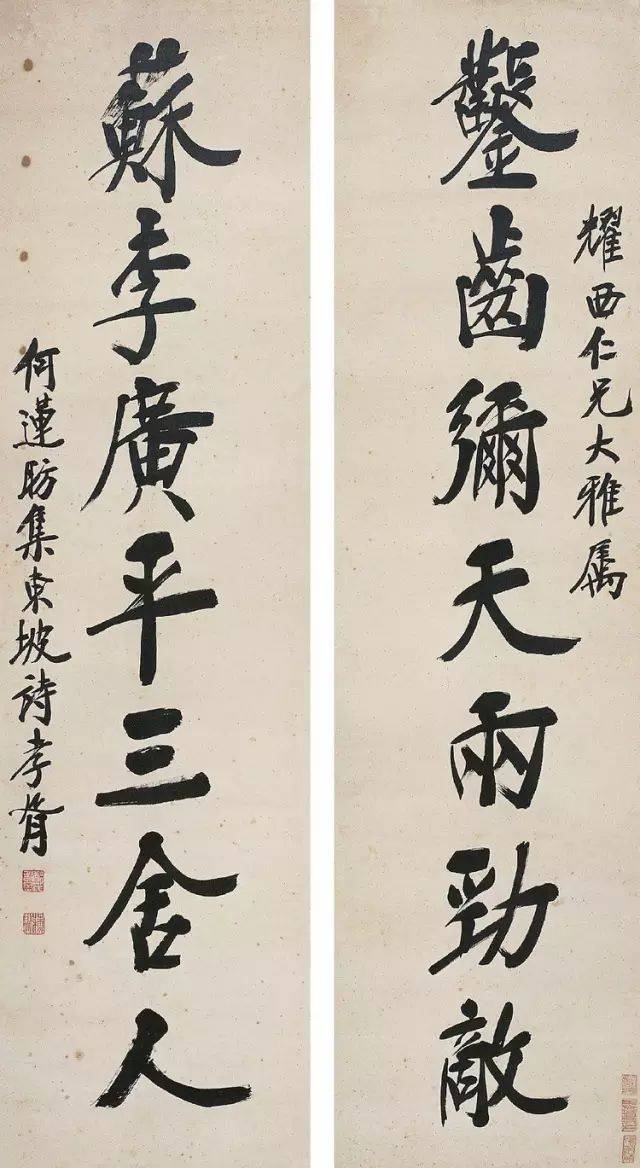 鑿齒彌天兩勁敵
耀西仁兄大雅屬
蘇李廣平三舍人
何蓮昉集東坡詩孝胥